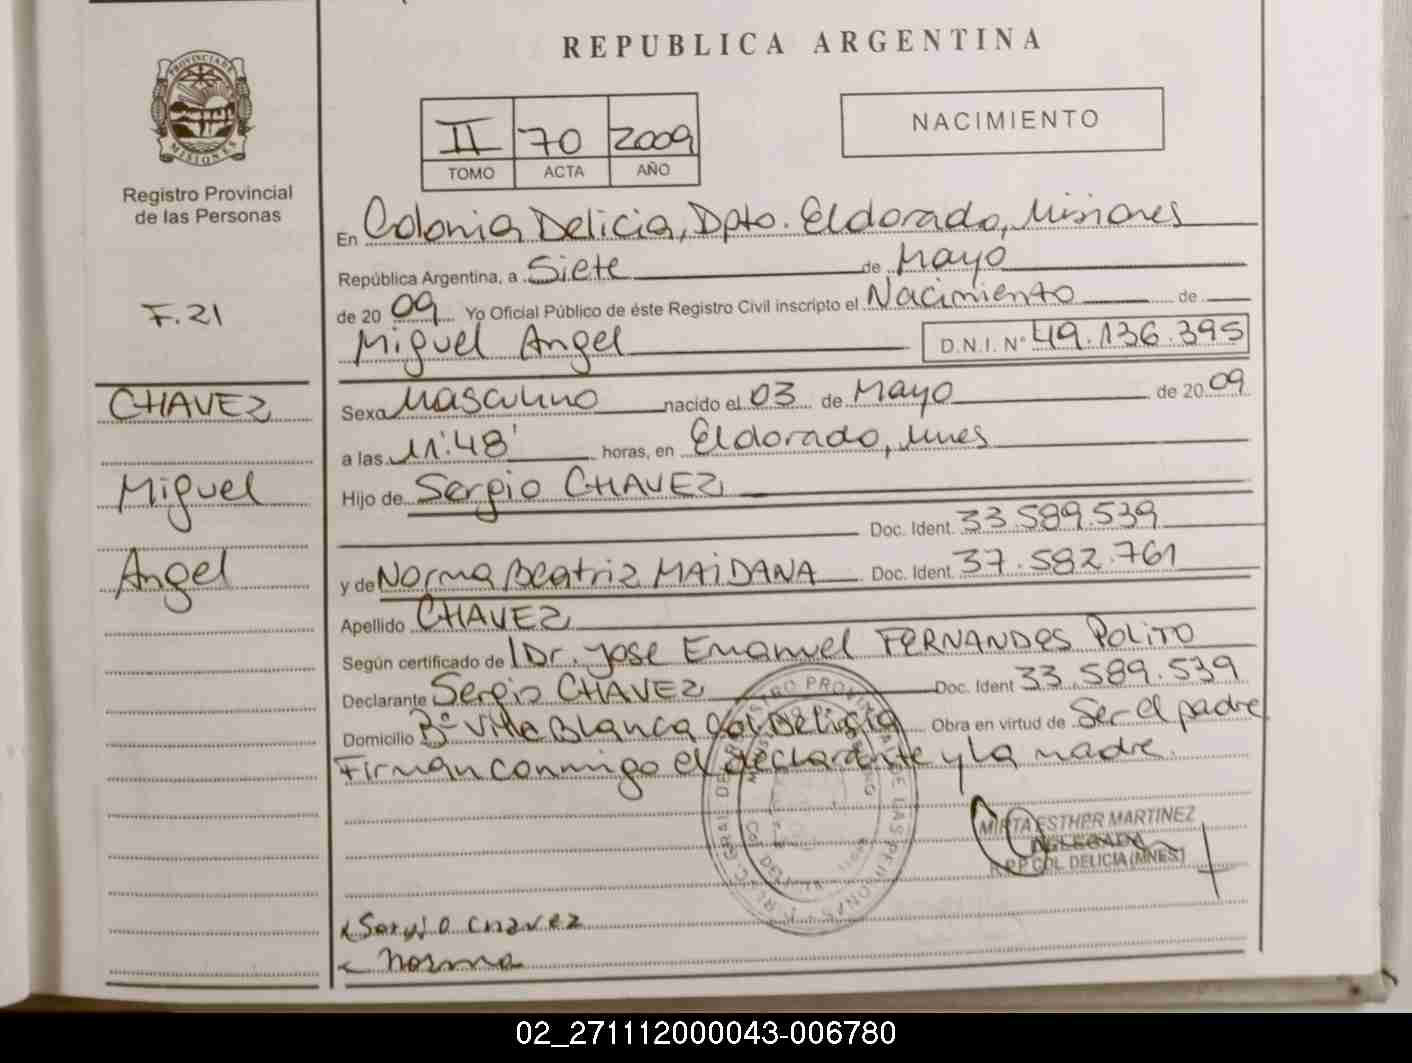 REPUBLICA ARGENTINA
PROVINCIA DE
MISIONES
Registro Provincial
de las Personas
II 70 2009
TOMO ACTA AÑO
NACIMIENTO
F.21
CHAVEZ
Miguel
Angel
En Colonia Delicia, Dpto. Eldorado, Misiones
República Argentina, a Siete de Mayo
de 20 09 Yo Oficial Público de éste Registro Civil inscripto el Nacimiento de
Miguel Angel D.N.I. N° 49.136.395
Sexo Masculino nacido el 03 de Mayo de 20 09
a las 11:48' horas, en Eldorado, Mnes
Hijo de Sergio CHAVEZ
Doc. Ident. 33.589.539
y de Norma Beatriz MAIDANA Doc. Ident. 37.582.761
Apellido CHAVEZ
Según certificado de Dr. Jose Emanuel FERNANDES POLITO
Declarante Sergio CHAVEZ Doc. Ident 33.589.539
Domicilio B° Villa Blanca Col Delicia Obra en virtud de Ser el padre
Firman conmigo el declarante y La madre.
MIRTA ESTHER MARTINEZ
DELEGADA
R.P.P COL. DELICIA (MNES)
Sergio Chavez
Norma
02_271112000043-006780